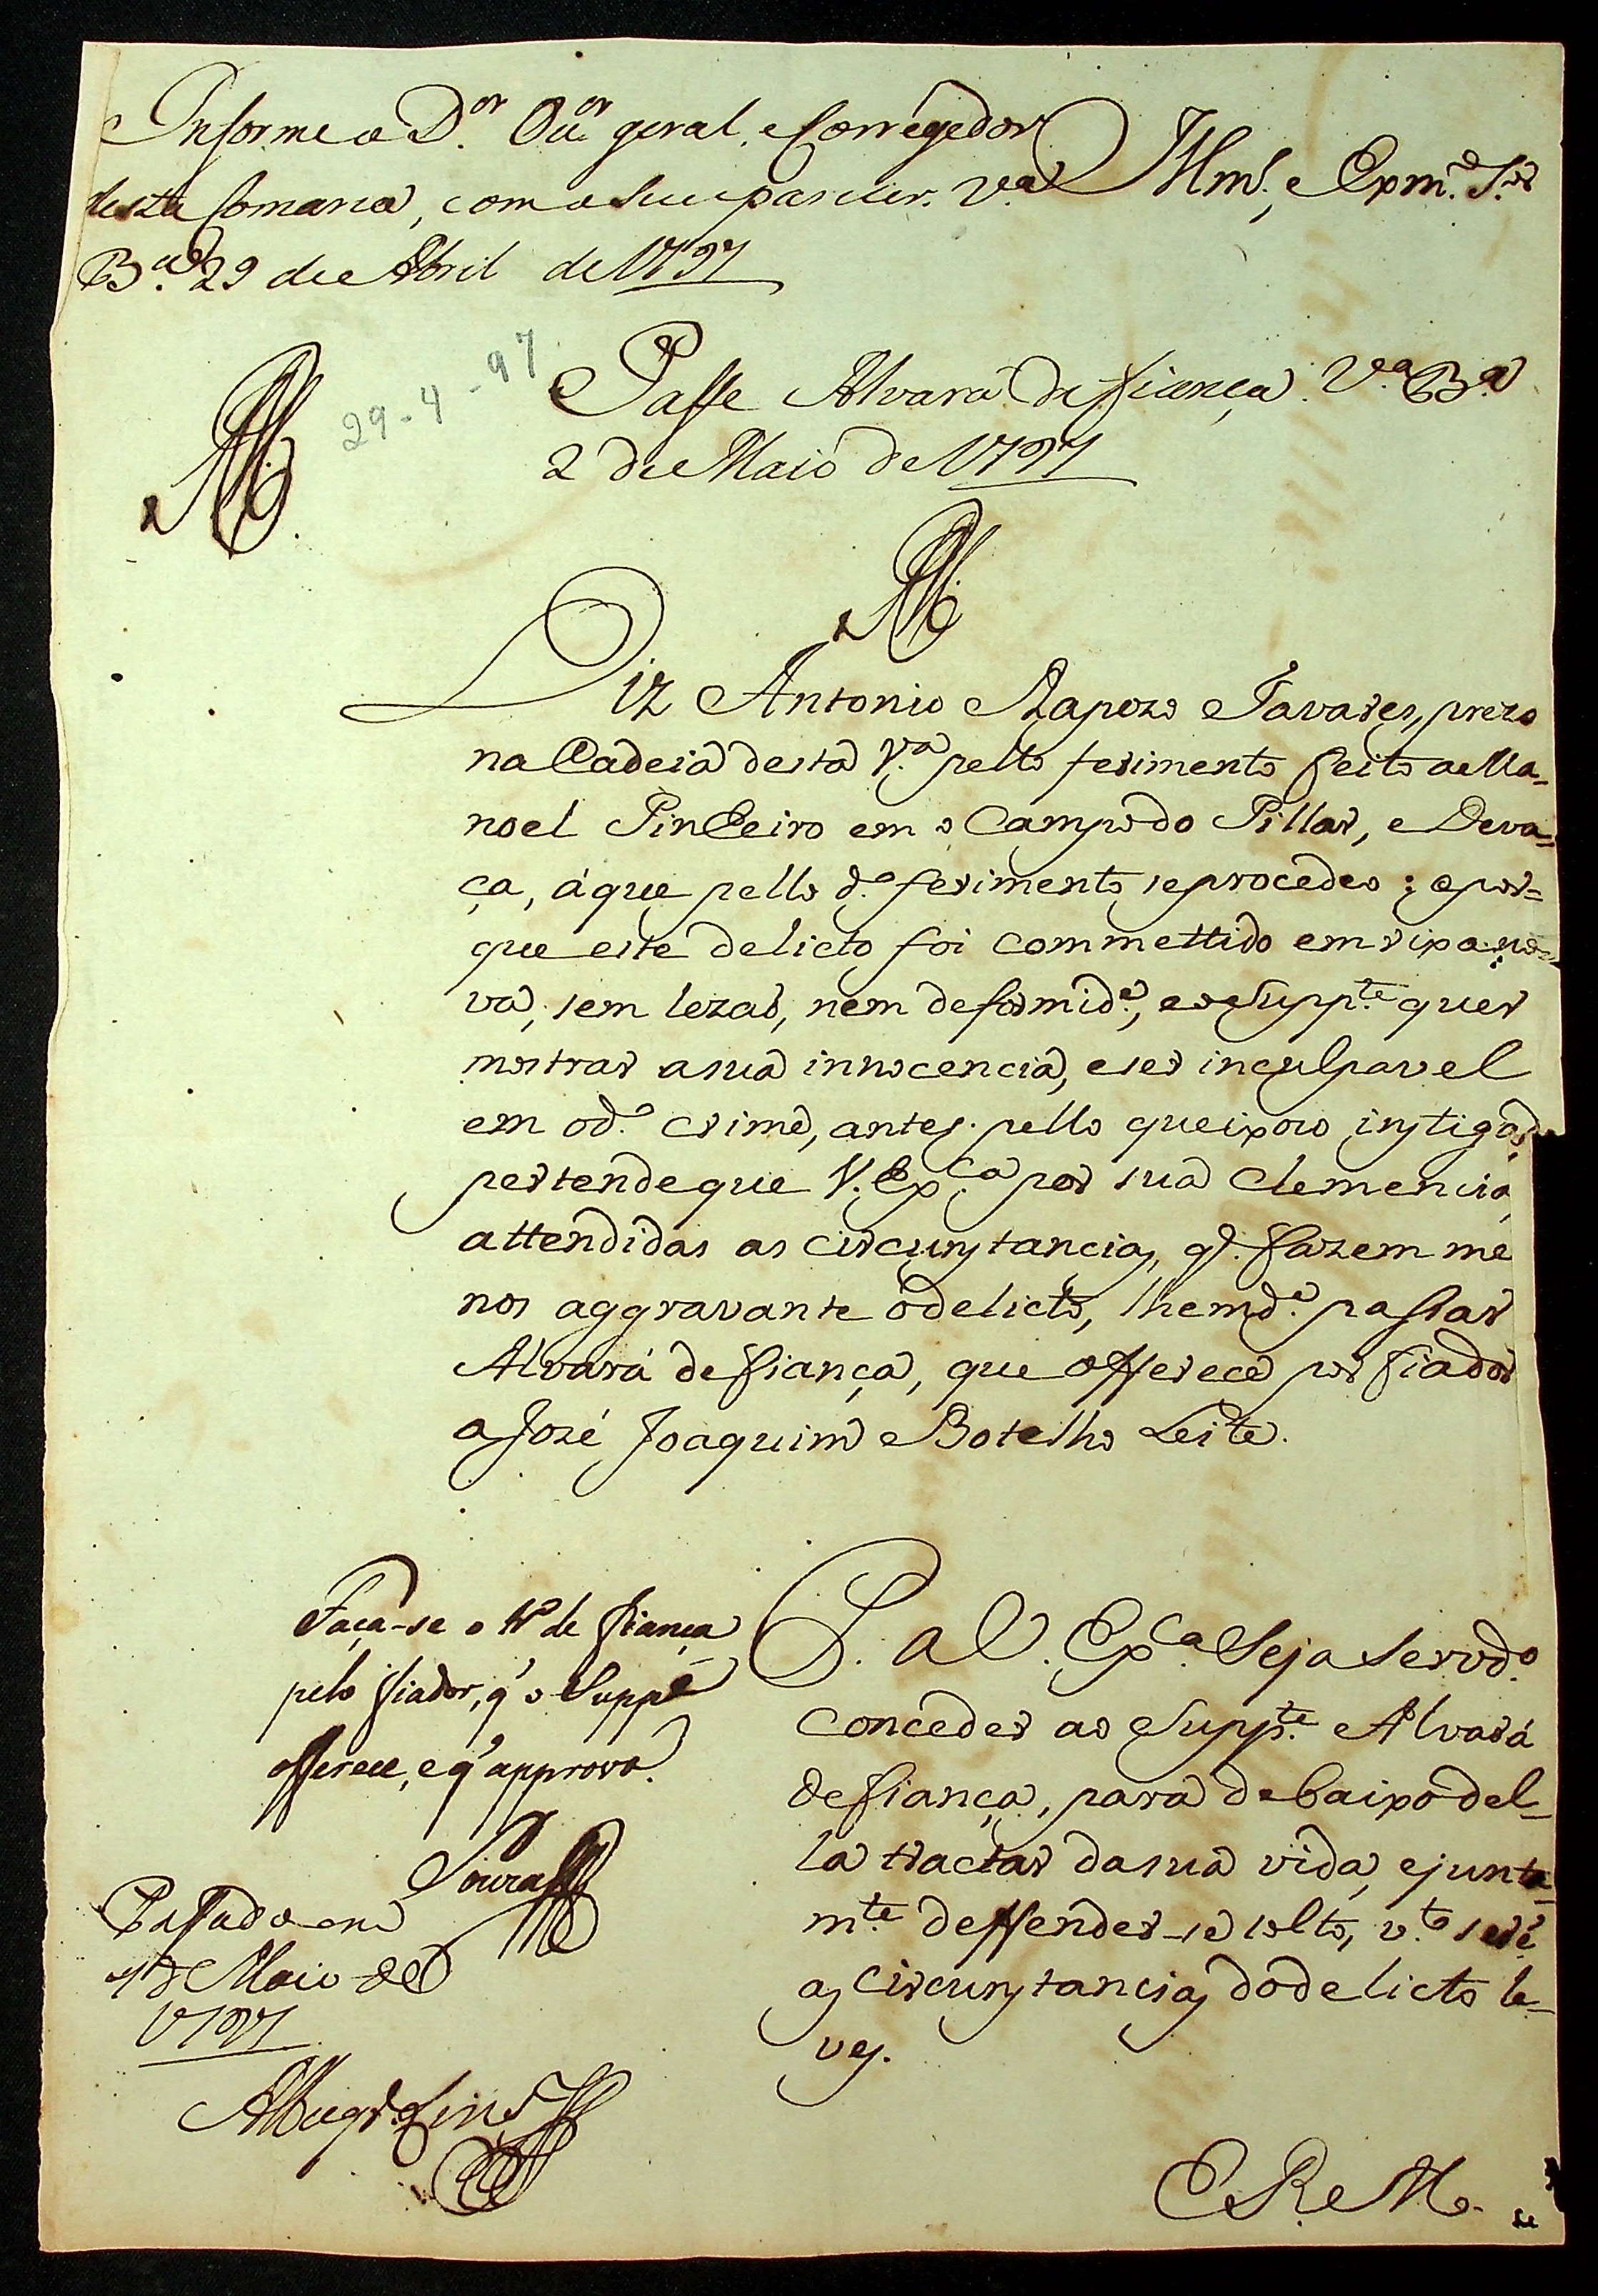 Informe o D.or Ou.or geral, e Corregedor
desta Comarca, com o seu parecer. V.a
B.a 29 de Abril de 1797
Illm.o, e Exm.o S.or
29-4-97
Passe Alvará de fiança. V.a B.a
2 de Maio de 1797
Diz Antonio Rapozo Tavares, prezo
na Cadeia desta V.a pello ferimento feito a Ma-
noel Pinheiro em o Campo do Pillar, e Deva-
ça, á que pello d.o ferimento se procedeo: e por-
que este delicto foi commettido em rixa no-
va, sem lezaõ, nem deformid.e, e o Supp.te quer
mostrar a sua innocencia, e ser inculpavel
em o d.o crime, antes pello queixozo instigado,
pertende que V. Ex.ca por sua Clemencia,
attendidas as circunstancias, q. fazem me
nos aggravante o delicto, lhe m.de passar
Alvará de fiança, que offerece por fiador
a José Joaquim Botelho Leite.
Faça-se o tr.o de fiança
pelo fiador, q' o Supp.e
offerece, e q' approvo.
P. a V. Ex.ca Seja servido
conceder ao Supp.te Alvará
de fiança, para debaixo del-
la tractar da sua vida, e junta-
m.te deffender-se solto, v.to serẽ
as circunstancias do delicto le-
ves.
Passado em
Maio de
1797
E R. M.ce